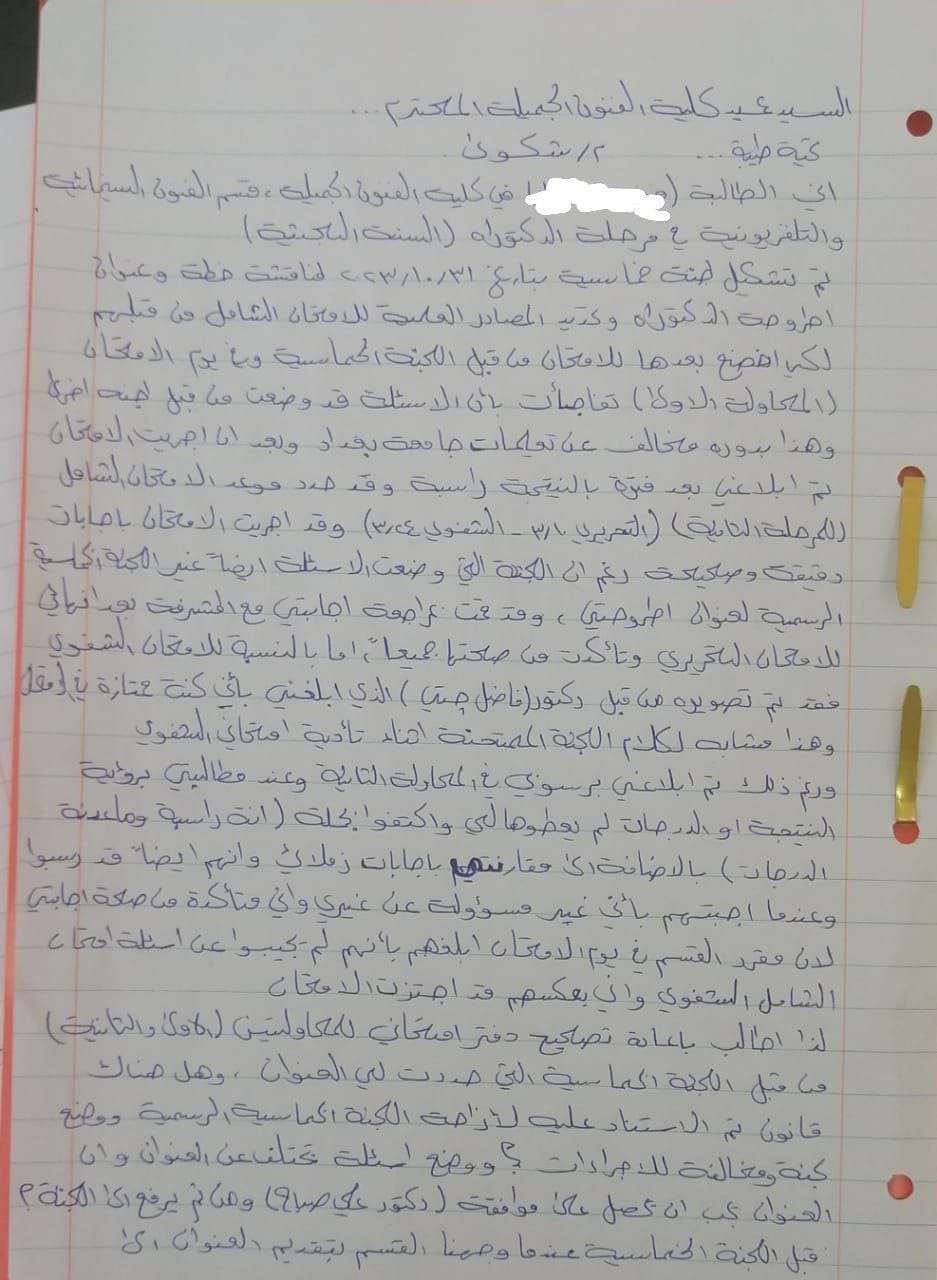 السيد عميد كلية الفنون الجميلة المحترم ...
تحية طيبة ... م/ شكوى
اني الطالبة ( في كلية الفنون الجميلة ، قسم الفنون السينمائية
والتلفزيونية في مرحلة الدكتوراه (السنة البحثية)
تم تشكيل لجنة خماسية بتاريخ ٢٠٢٣/١٠/٣١ لمناقشة خطة وعنوان
اطروحة الدكتوراه وتحديد المصادر العلمية للامتحان الشامل من قبلهم
لكي اخضع بعدها للامتحان من قبل اللجنة الخماسية وفي يوم الامتحان
(المحاولة الاولى) تفاجأت بأن الاسئلة قد وضعت من قبل لجنة اخرى
وهذا بدوره مخالف عن تعليمات جامعة بغداد وبعد ان اجريت الامتحان
تم ابلاغي بعد فترة بالنتيجة راسبة وقد حدد موعد الامتحان الشامل
(للمرحلة الثانية) (التحريري ٣/١٠ - الشفوي ٣/٢٤) وقد اجريت الامتحان باجابات
دقيقة وصحيحة رغم ان اللجنة التي وضعت الاسئلة ايضاً غير اللجنة الخماسية
الرسمية لعنوان اطروحتي ، وقد قمت بمراجعة اجابتي مع المشرفة بعد انهائي
للامتحان التحريري وتأكدت من صحتها جميعاً ، اما بالنسبة للامتحان الشفوي
فقد تم تصويره من قبل دكتور (فاضل چتي) الذي ابلغني بأني كنت ممتازة في
وهذا مشابه لكلام اللجنة الممتحنة اثناء تأدية امتحاني الشفوي
ورغم ذلك تم ابلاغي برسوبي في المحاولة الثانية وعند مطالبتي برؤية
النتيجة او الدرجات لم يعطوها لي واكتفوا بجملة (انتة راسبة وماعدنة
الدرجات) بالاضافة الى مقارنتي باجابات زملائي وانهم ايضاً قد رسبوا
وعندما اجبتهم بأني غير مسؤولة عن غيري واني متأكدة من صحة اجابتي
لان مقرر القسم في يوم الامتحان ابلغهم بأنهم لم يجيبوا عن اسئلة امتحان
الشامل الشفوي واني بعكسهم قد اجتزت الامتحان
لذا اطالب باعادة تصحيح دفتر امتحاني للمحاولتين (الاولى والثانية)
من قبل اللجنة الخماسية التي حددت لي العنوان ، وهل هناك
قانون تم الاستناد عليه لأزاحة اللجنة الخماسية الرسمية ووضع
لجنة ومخالفة للاجراءات ؟ ووضع اسئلة تختلف عن العنوان وان
العنوان يجب ان يحصل على موافقة (دكتور علي صباح) ومن ثم يرفع الى اللجنة ؟
قبل اللجنة الخماسية عندما وجهنا القسم بتقديم العنوان الى